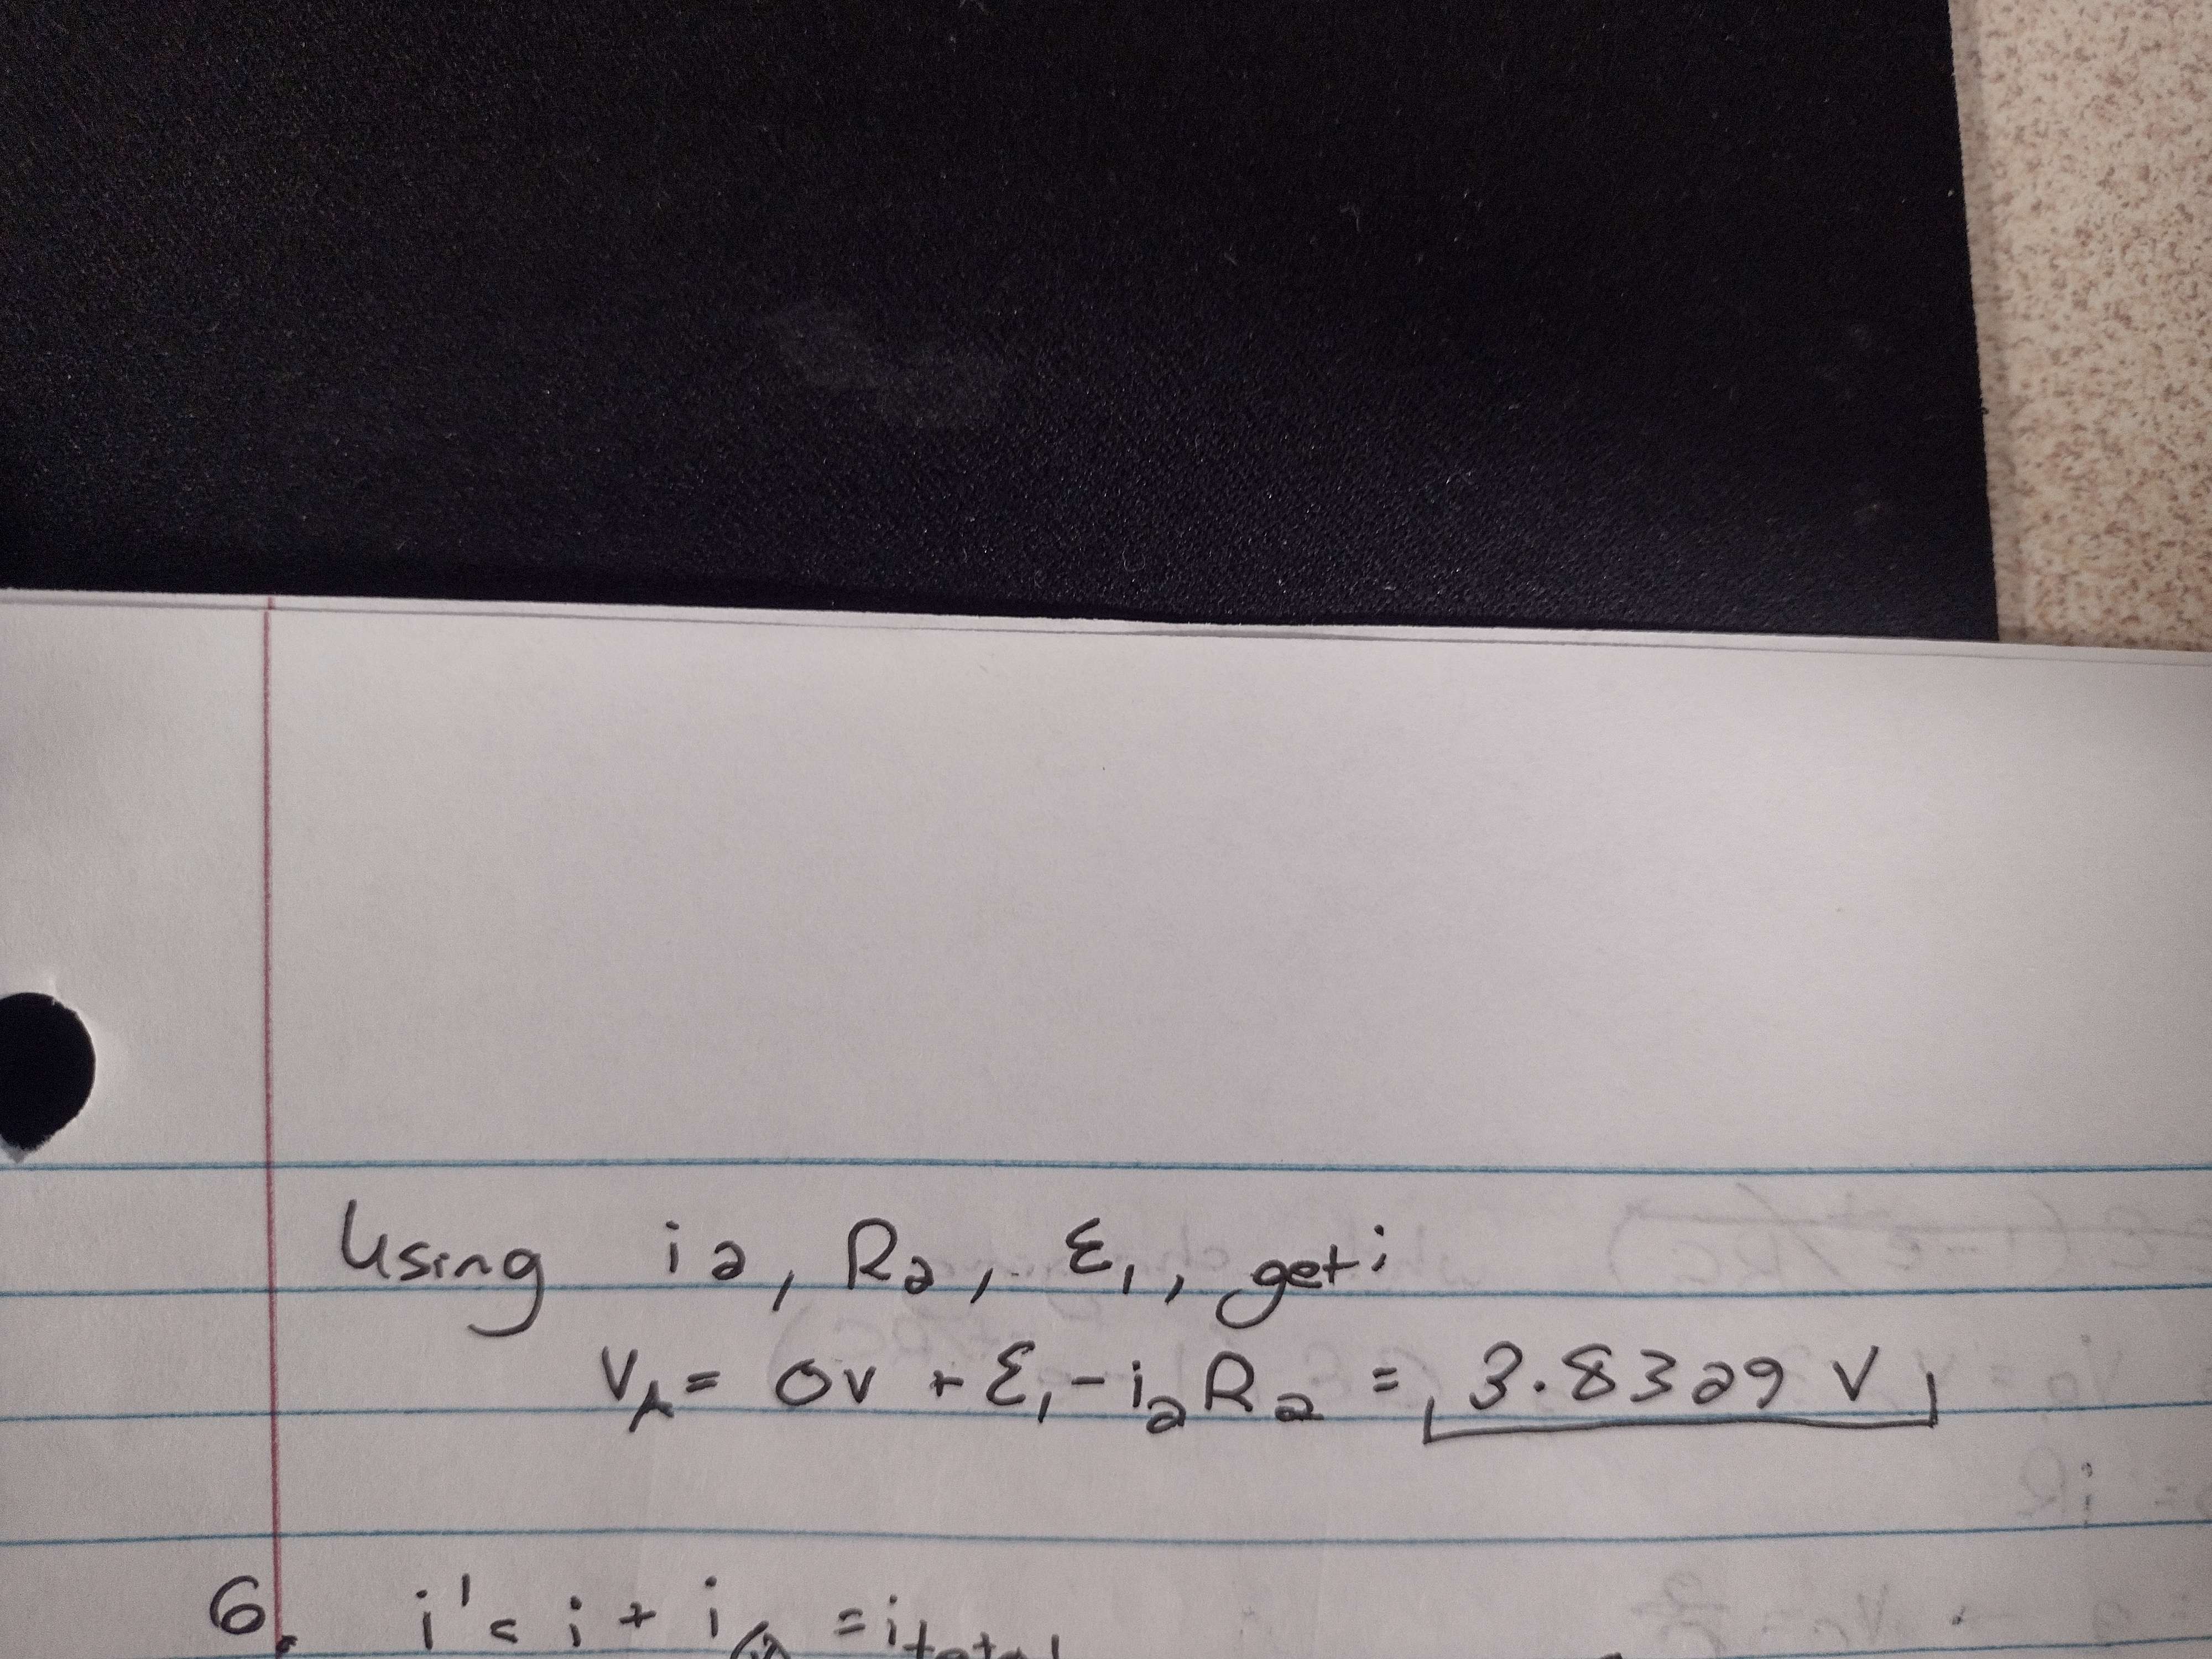 Using i2, R2, ε1, get:
VA = 0V + ε1 - i2R2 = 3.8329 V
6. i' = i + i(V) = itotal